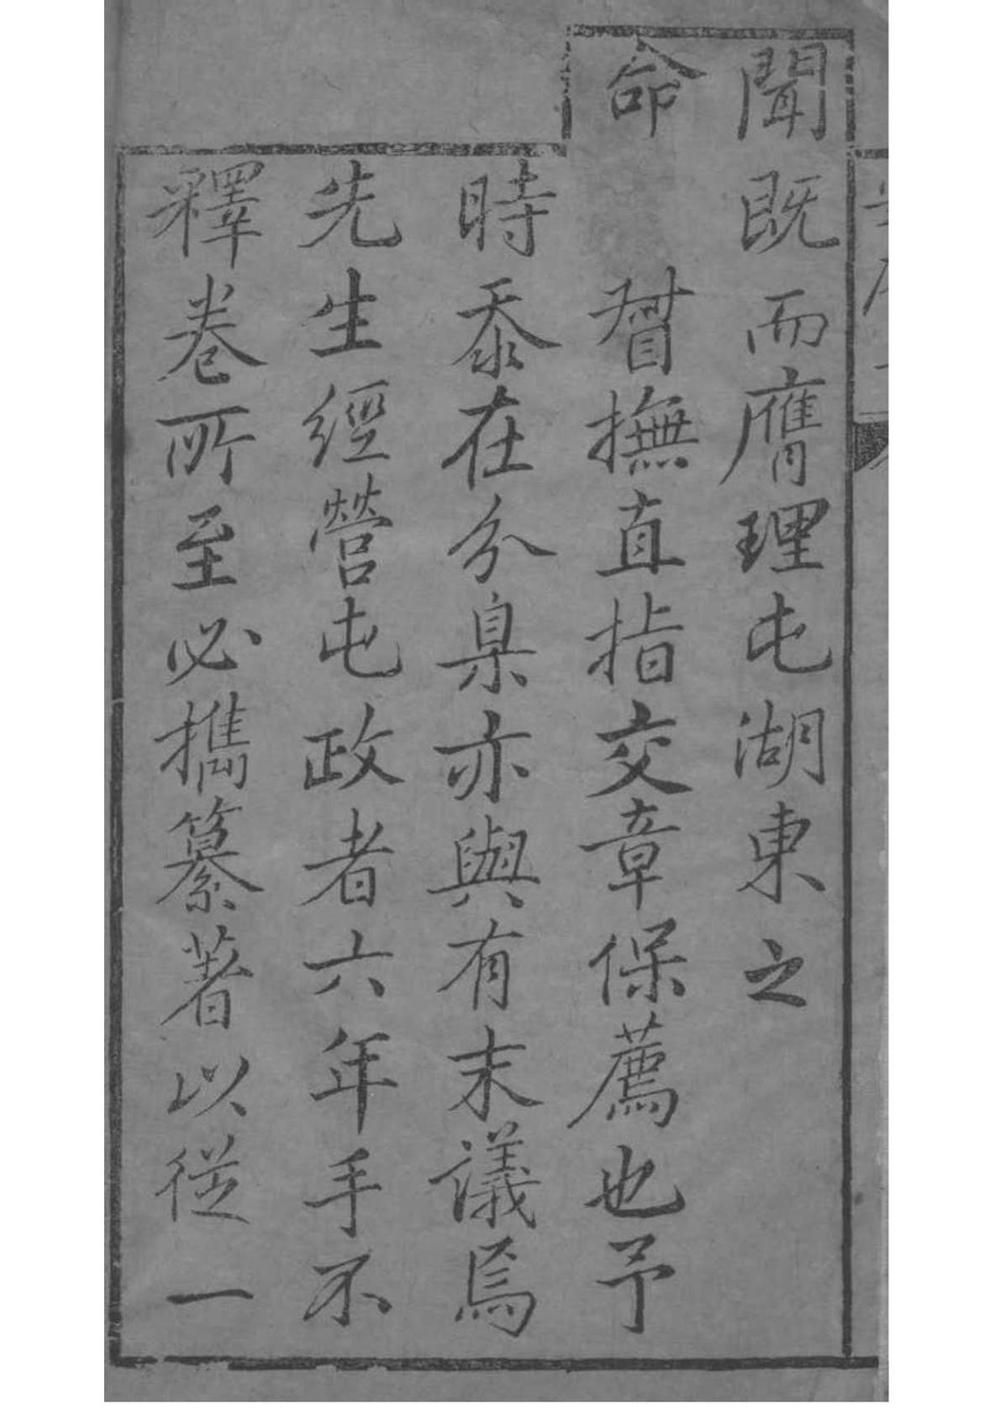 聞既而膺理屯湖東之
命督撫直指交章保薦也予
時忝在分臬亦與有末議焉
先生經營屯政者六年手不
釋巻所至必攜纂著以從一